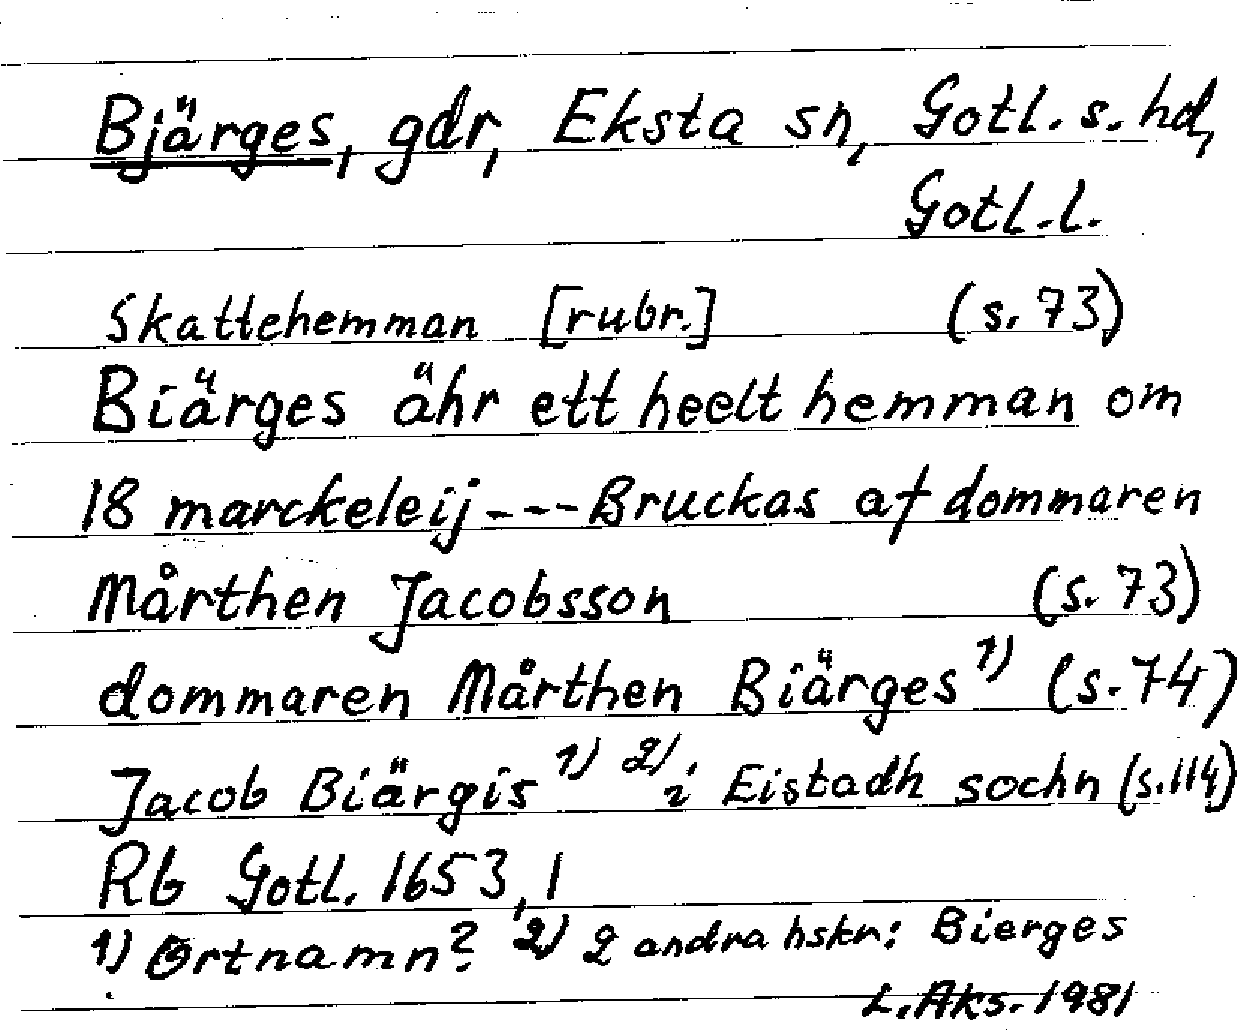 Bjärges, gdr, Eksta sn, Gotl. s. hd,
Gotl. l.
Skattehemman [rubr.] (s. 73)
Biärges ähr ett heelt hemman om
18 marckeleij --- Bruckas af dommaren
Mårthen Jacobsson (s. 73)
dommaren Mårthen Biärges 1) (s. 74)
Jacob Biärgis 1) 2) i Eistadh sochn (s. 114)
Rb Gotl. 1653, 1
1) Ortnamn? 2) 2 andra hskr: Bierges
L. Aks. 1981